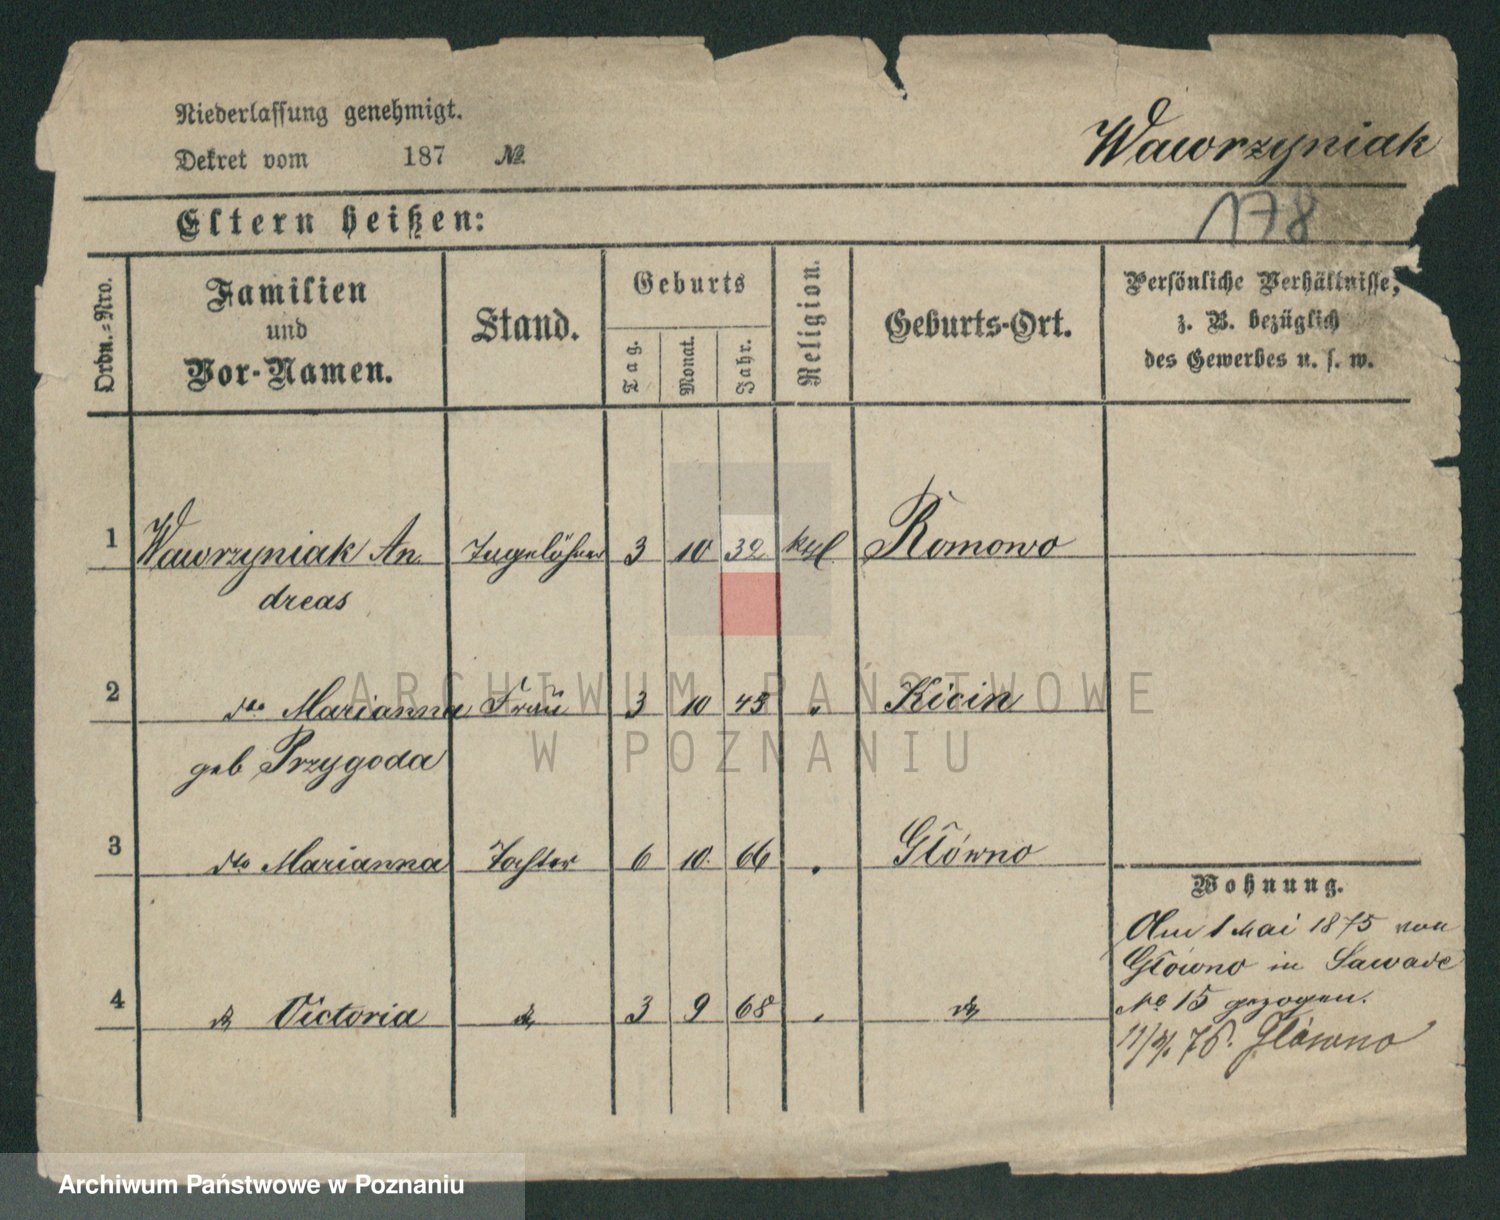 Niederlassung genehmigt.
Dekret vom 187 №
Wawrzyniak
178
Eltern heißen:
Ordn.-Nro.
Familien
und
Vor-Namen.
Stand.
Geburts
Tag.
Monat.
Jahr.
Religion.
Geburts-Ort.
Persönliche Verhältnisse,
z. B. bezüglich
des Gewerbes u. s. w.
1 Wawrzyniak An Tagelöhner 3 10 32 kath Romowo
dreas
2 dto Marianna Frau 3 10 43 " Kicin
geb Przygoda
3 dto Marianna Tochter 6 10 66 " Główno
4 do Victoria do 3 9 68 " do
Wohnung.
Am 1 Mai 1875 von
Główno in Sawade
No 15 gezogen.
Główno
ARCHIWUM PAŃSTWOWE
W POZNANIU
Archiwum Państwowe w Poznaniu